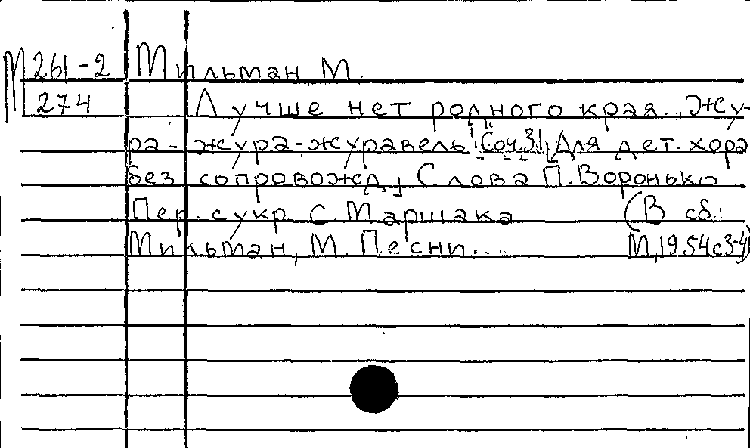 М261-2 Мильман М.
274 Лучше нет родного края. Жу-
ра-жура-журавель [Соч.3] Для дет. хора
без сопровожд. Слова П. Воронько
Пер. с укр. С. Маршака (В сб.:
Мильман, М. Песни... М, 1954 с 3-4)